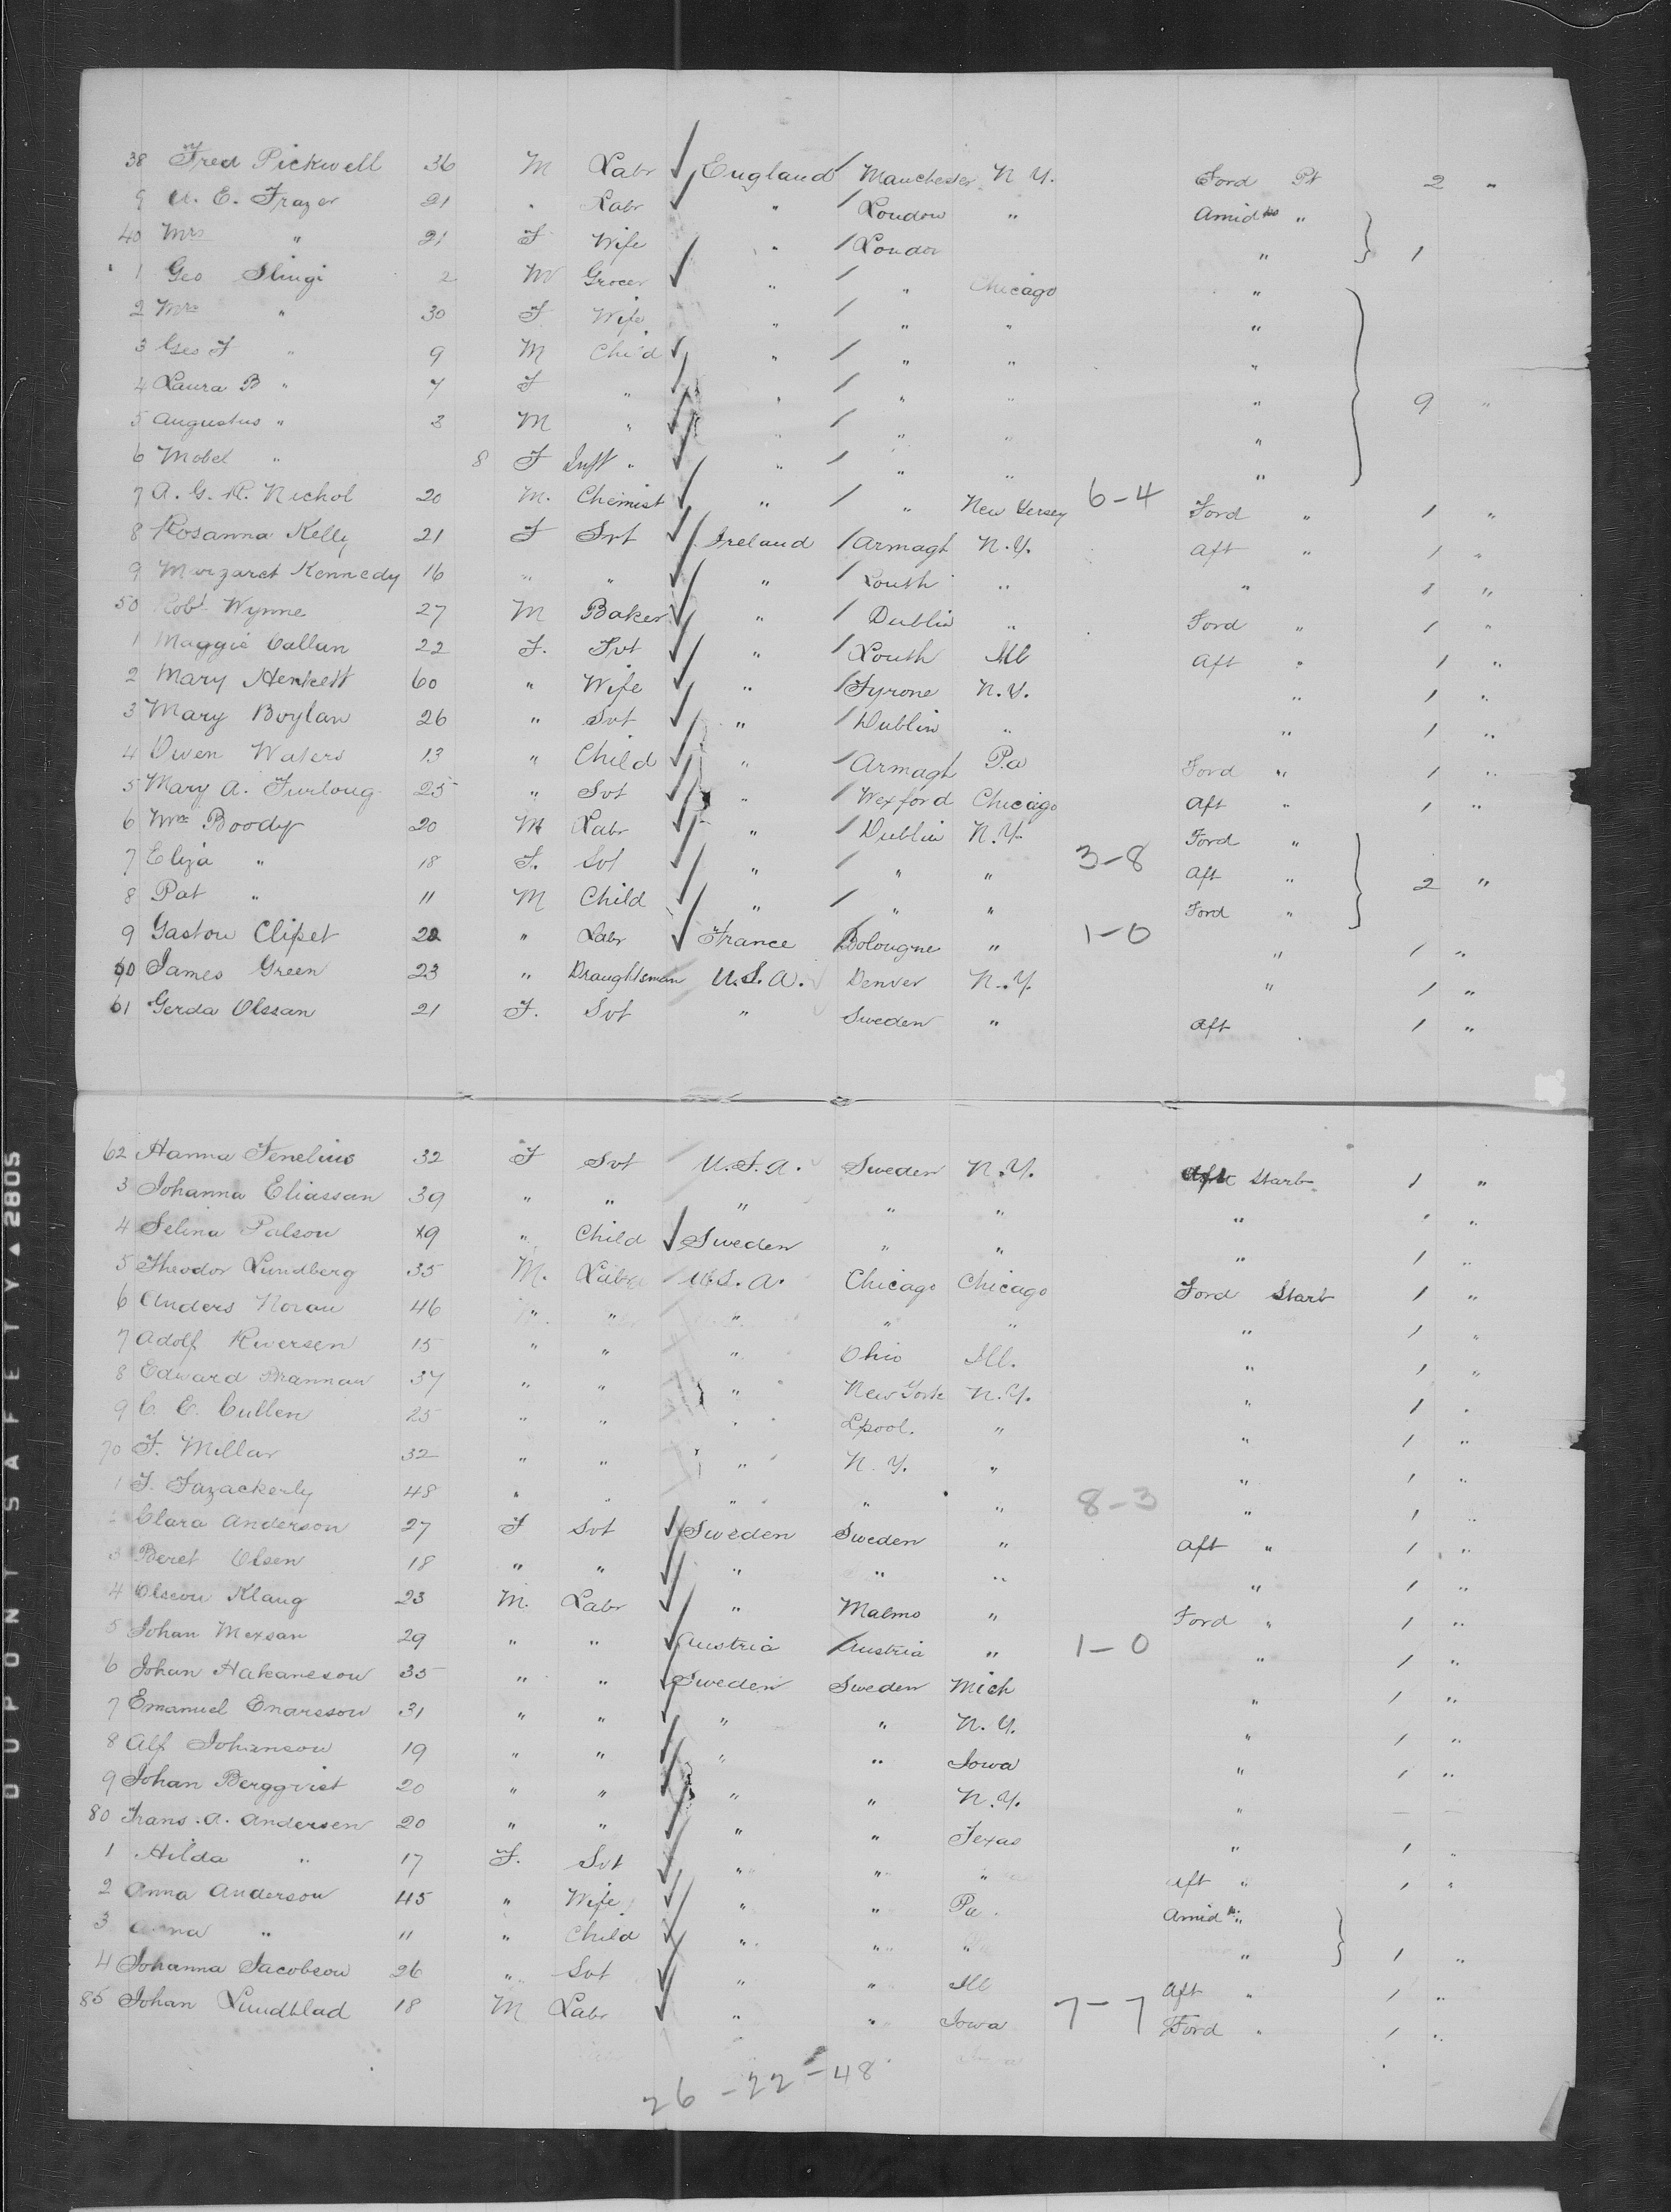 38 Fred Pickwell 36 M Labr England Manchester N Y. Ford Pt 2 "
9 A. E. Frazer 21 " Labr " London " Amid "
40 Mrs " 21 F Wife " London " 1
1 Geo Slingi 2 M Grocer " " Chicago "
2 Mrs " 30 F Wife " " " "
3 Geo F " 9 M Child " " " "
4 Laura B " 7 F " " " " " 9 "
5 Augustus " 3 M " " " " "
6 Mabel " 8 F Inft " " " " "
7 A. G. R. Nichol 20 M. Chemist " " New Jersey 6-4 Ford " 1 "
8 Rosanna Kelly 21 F Svt Ireland Armagh N.Y. Aft " 1 "
9 Margaret Kennedy 16 " " " Louth " " 1 "
50 Robt Wynne 27 M Baker " Dublin " Ford " 1 "
1 Maggie Callan 22 F. Svt " Louth Ill Aft " 1 "
2 Mary Henkett 60 " Wife " Tyrone N.Y. " 1 "
3 Mary Boylan 26 " Svt " Dublin " " 1 "
4 Owen Waters 13 " Child " Armagh Pa Ford " 1 "
5 Mary A. Furlong 25 " Svt " Wexford Chicago Aft " 1 "
6 Wm Boody 20 M Labr " Dublin N.Y. Ford "
7 Eliza " 18 F. Svt " " " 3-8 Aft " 2 "
8 Pat " 11 M Child " " " Ford "
9 Gaston Clipet 22 " Labr France Bolougne " 1-0 " 1 "
60 James Green 23 " Draughtsman U.S.A. Denver N.Y. " 1 "
61 Gerda Olssan 21 F. Svt " Sweden " Aft 1 "
62 Hanna Fenelius 32 F Svt U.S.A. Sweden N.Y. Aft Starb 1 "
3 Johanna Eliassan 39 " " " " " " " "
4 Selina Palson 9 " Child Sweden " " " 1 "
5 Theodor Lundberg 35 M. Labr U.S.A. Chicago Chicago Ford Starb 1 "
6 Anders Noran 46 " " " " " " 1 "
7 Adolf Riversen 15 " " " Ohio Ill. " 1 "
8 Edward Brannan 37 " " " New York N.Y. " 1 "
9 C. C. Cullen 25 " " " Lpool. " " 1 "
70 F. Millar 32 " " " N.Y. " " 1 "
1 F. Fazackerly 48 " " " " " 8-3 " 1 "
2 Clara Anderson 27 F Svt Sweden Sweden " Aft " 1 "
3 Beret Olsen 18 " " " " " " 1 "
4 Olscon Klang 23 M. Labr " Malmo " Ford " 1 "
5 Johan Mexsan 29 " " Austria Austria " 1-0 " 1 "
6 Johan Hakaneson 35 " " Sweden Sweden Mich " 1 "
7 Emanuel Enarsson 31 " " " " N.Y. " 1 "
8 Alf Johanson 19 " " " " Iowa " 1 "
9 Johan Berggvist 20 " " " " N.Y. " — —
80 Frans. A. Andersen 20 " " " " Texas " 1 "
1 Hilda " 17 F. Svt " " " Aft " 1 "
2 Anna Anderson 45 " Wife " " Pa. Amid "
3 Anna " 11 " Child " " " " 1 "
4 Johanna Jacobson 26 " Svt " " Ill Aft " 1 "
85 Johan Lundblad 18 M Labr " " Iowa 7-7 Ford " 1 "
26 - 22 - 48
DUPONT SAFETY ▲ 2805